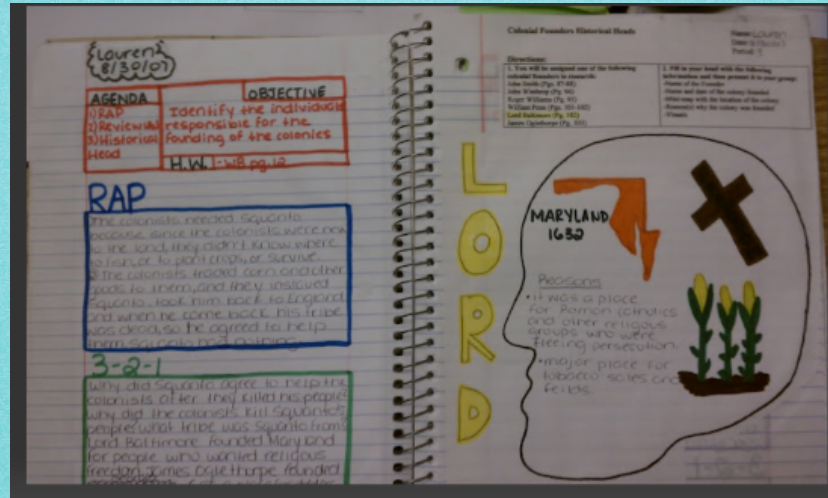 Lauren
8/30/07
AGENDA
1) RAP
3) Historical
Head
OBJECTIVE
Identify the individuals
responsible for the
founding of the colonies
H.W. - WB pg. 12
RAP
The colonists needed Squanto
because since the colonists were new
to the land, they didn't know where
to fish, or to plant crops, or survive.
The colonists traded corn and other
goods to them, and they
Squanto, took him back to England
and when he came back his tribe
was dead, so he agreed to help
them
3-2-1
Why did Squanto agree to help the
colonists after they killed his people
why did the colonists kill Squanto's
people what tribe was Squanto from
Lord Baltimore founded Maryland
for people who wanted religious
James Oglethorpe founded
Colonial Founders Historical Heads
Name: Lauren
Period:
Directions:
1. You will be assigned one of the following
colonial founders to research:
John Smith (Pgs. 87-88)
John Winthrop (Pg. 96)
Roger Williams (Pg. 95)
William Penn (Pgs. 101-102)
Lord Baltimore (Pg. 102)
James Oglethorpe (Pg. 103)
2. Fill in your head with the following
information and then present it to your group:
-Name of the Founder
-Name and date of the colony founded
-Mini-map with the location of the colony
-Reason(s) why the colony was founded
-Visuals
LORD
MARYLAND
1632
Reasons
• it was a place
for Roman
and other
groups who were
fleeing persecution.
• major place for
tobacco sales and
feilds.